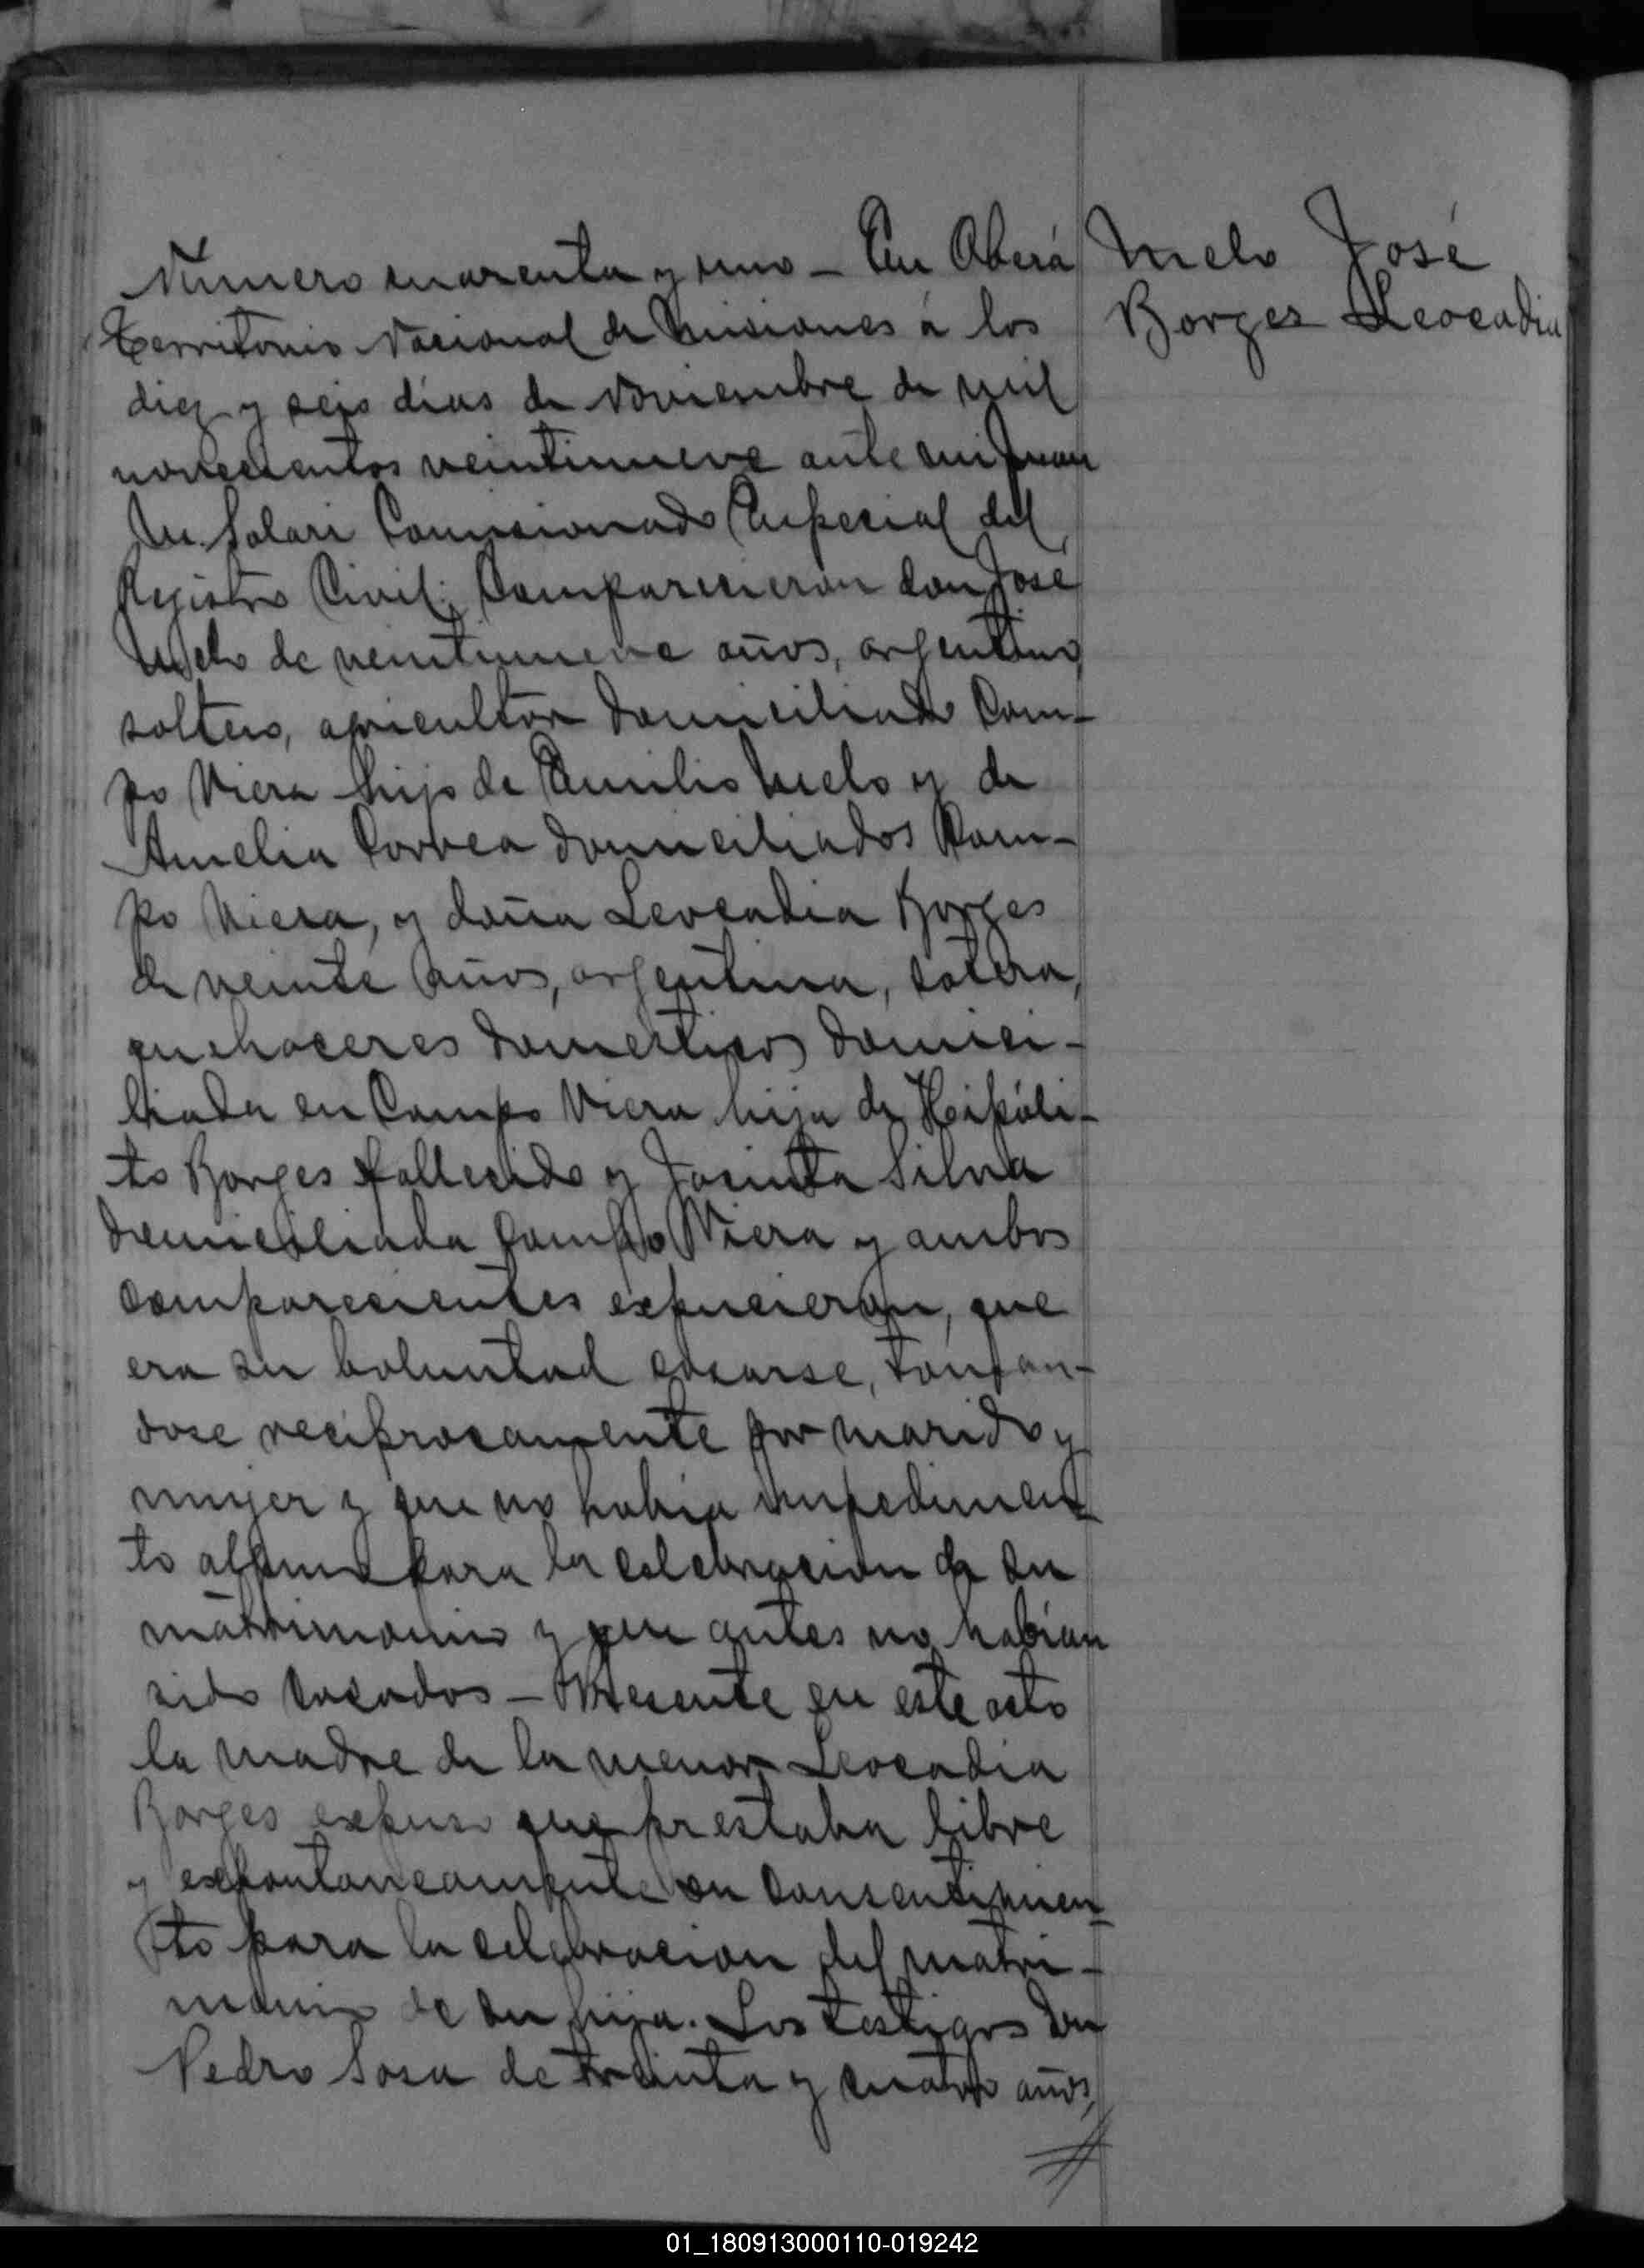 Melo José
Borges Leocadia
Número cuarenta y uno - En Oberá
Territorio Nacional de Misiones á los
diez y seis días de Noviembre de mil
novecientos veintinueve ante mi Juan
M. Solari Comisionado Especial del
Registro Civil; Comparecieron don José
Melo de veintinueve años, argentino,
soltero, agricultor domiciliado Cam-
po Viera hijo de Emilio Melo y de
Amelia Correa domiciliados Cam-
po Viera, y doña Leocadia Borges
de veinte años, argentina, sotera,
quehaceres domesticos domici-
liada en Campo Viera hija de Hipóli-
to Borges fallecido y Jacinta Silva
domiciliada Campo Viera y ambos
comparecientes expucieron, que
era su boluntad casarse, toman-
dose reciprocamente por marido y
mujer y que no había impedimen
to alguno para la celebracion de su
matrimonio y que antes no habían
sido casados - Presente en este acto
la madre de la menor Leocadia
Borges expuso que prestaba libre
y expontaneamente su consentimien-
to para la celebracion del matri-
monio de su hija. Los testigos don
Pedro Sosa de treinta y cuatro años,
01_180913000110-019242